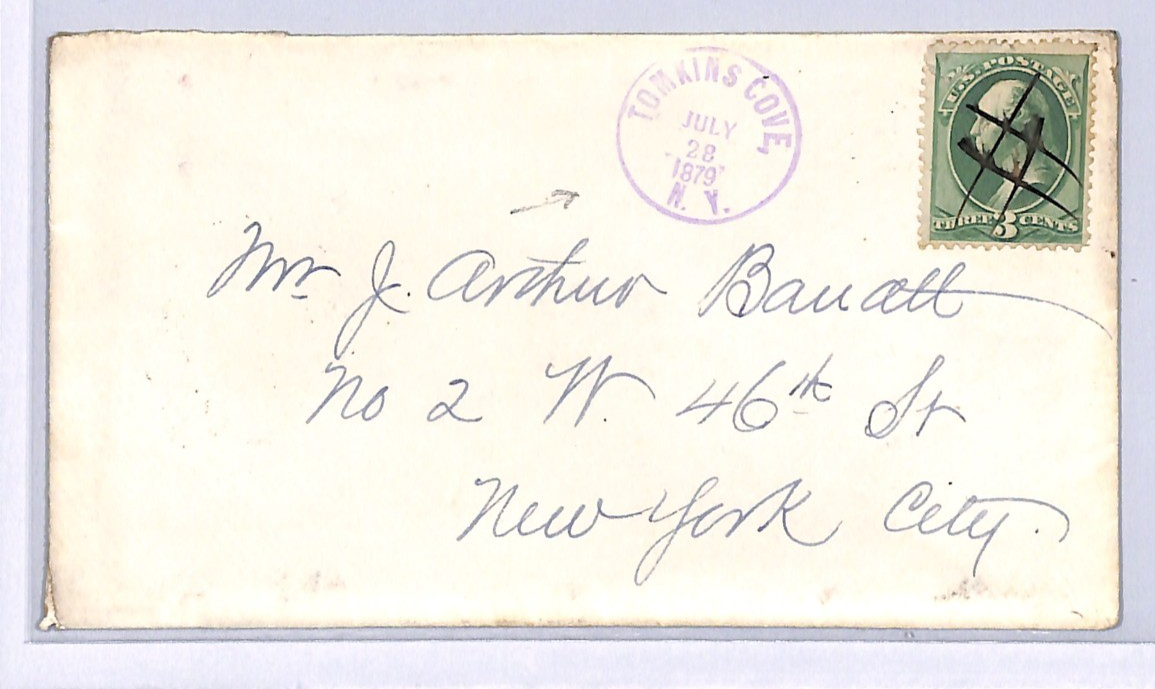 TOMKINS COVE,
JULY
28
1879
N. Y.
U.S. POSTAGE
THREE 3 CENTS
Mr J. Arthur Barratt
No 2 W 46th St
New York City.